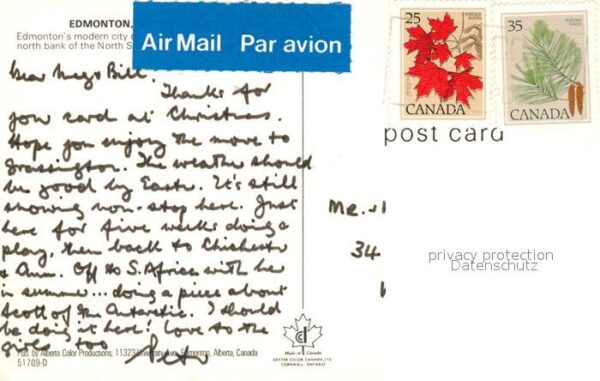 EDMONTON,
Edmonton's modern city
north bank of the North S
Air Mail Par avion
25
POSTAGE
POSTES
CANADA
35
POSTAGE
POSTES
CANADA
post card
Dear Meg & Bill,
Thanks for
your card at Christmas.
Hope you enjoy the move to
Grassington. The weather should
be good by Easter. It's still
snowing non-stop here. Just
here for five weeks doing a
play, then back to Chichester
& Ann. Off to S. Africa with her
in summer... doing a piece about
Scott of the Antarctic. I should
be doing it here! Love to the
girls too Peter
Mr.
34
privacy protection
Datenschutz
Pub. by Alberta Color Productions, 11323 University Ave., Edmonton, Alberta, Canada
51709-D
Made in Canada
DEXTER COLOR CANADA LTD.
CORNWALL, ONTARIO